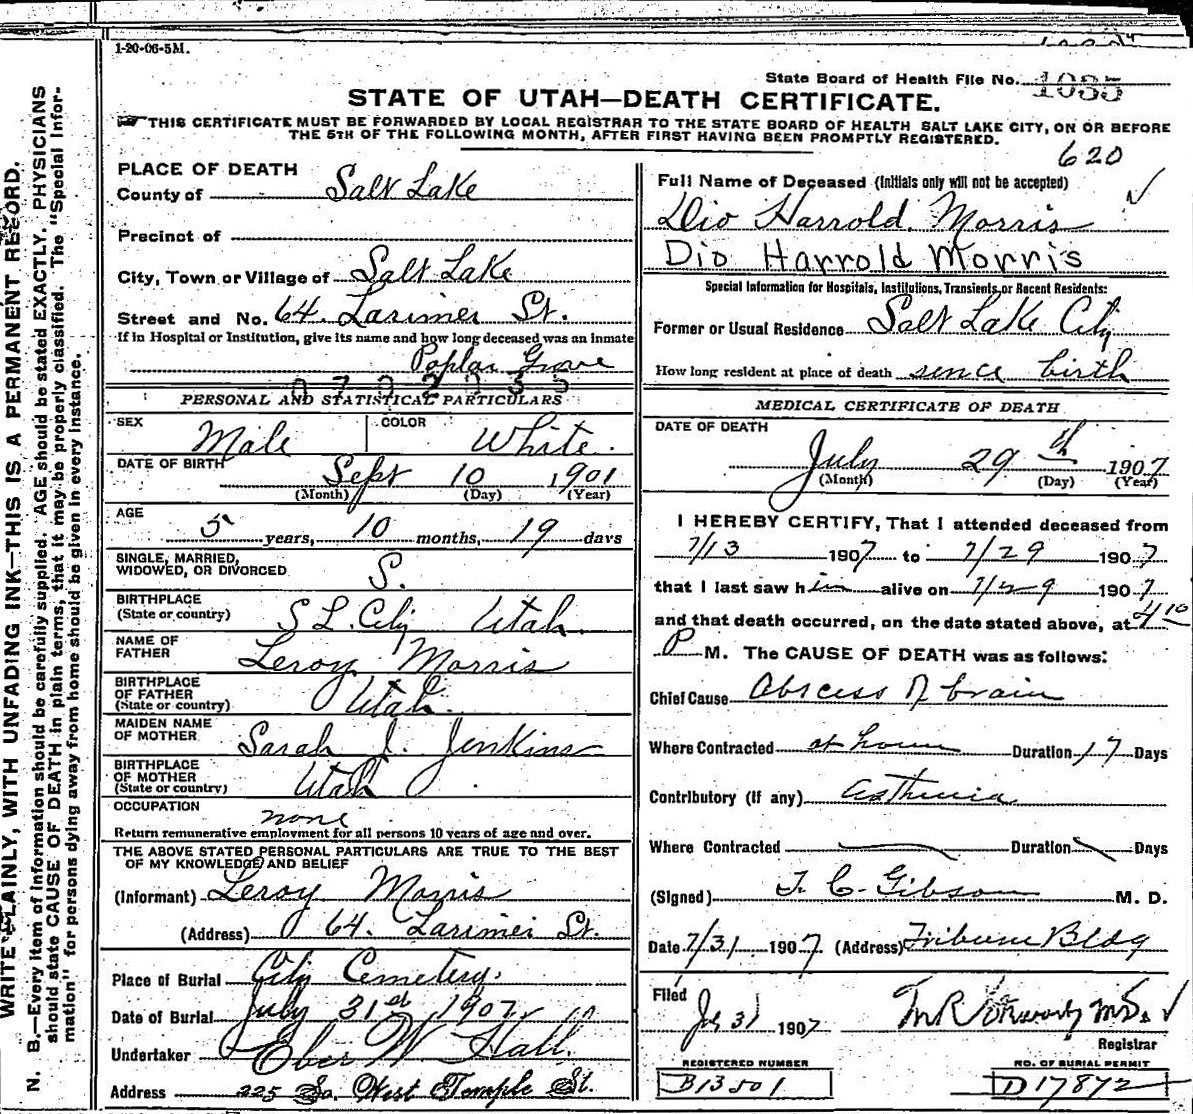 1-20-06-5M.
State Board of Health File No. 1035
STATE OF UTAH—DEATH CERTIFICATE.
THIS CERTIFICATE MUST BE FORWARDED BY LOCAL REGISTRAR TO THE STATE BOARD OF HEALTH SALT LAKE CITY, ON OR BEFORE
THE 5TH OF THE FOLLOWING MONTH, AFTER FIRST HAVING BEEN PROMPTLY REGISTERED.
620
WRITE PLAINLY, WITH UNFADING INK—THIS IS A PERMANENT RECORD.
N. B.—Every item of information should be carefully supplied. AGE should be stated EXACTLY. PHYSICIANS
should state CAUSE OF DEATH in plain terms, that it may be properly classified. The "Special Infor-
mation" for persons dying away from home should be given in every instance.
PLACE OF DEATH
County of Salt Lake
Precinct of
City, Town or Village of Salt Lake
Street and No. 64. Larimer St.
If in Hospital or Institution, give its name and how long deceased was an inmate
Poplar Grove
PERSONAL AND STATISTICAL PARTICULARS
SEX Male COLOR White.
DATE OF BIRTH Sept 10 1901
(Month) (Day) (Year)
AGE 5 years, 10 months, 19 days
SINGLE, MARRIED,
WIDOWED, OR DIVORCED S.
BIRTHPLACE
(State or country) S L. City Utah.
NAME OF
FATHER Leroy Morris
BIRTHPLACE
OF FATHER
(State or country) Utah.
MAIDEN NAME
OF MOTHER Sarah J. Jenkins
BIRTHPLACE
OF MOTHER
(State or country) Utah
OCCUPATION none
Return remunerative employment for all persons 10 years of age and over.
THE ABOVE STATED PERSONAL PARTICULARS ARE TRUE TO THE BEST
OF MY KNOWLEDGE AND BELIEF
(Informant) Leroy Morris
(Address) 64. Larimer St.
Place of Burial City Cemetery.
Date of Burial July 31st 1907
Undertaker Eber W. Hall.
Address 225 So. West Temple St.
Full Name of Deceased (Initials only will not be accepted)
Dio Harrold. Morris
Dio Harrold Morris
Special Information for Hospitals, Institutions, Transients, or Recent Residents:
Former or Usual Residence Salt Lake City
How long resident at place of death sence birth
MEDICAL CERTIFICATE OF DEATH
DATE OF DEATH
July 29th 1907
(Month) (Day) (Year)
I HEREBY CERTIFY, That I attended deceased from
7/13 1907 to 7/29 1907
that I last saw him alive on 7/29 1907
and that death occurred, on the date stated above, at 4 10
P M. The CAUSE OF DEATH was as follows:
Chief Cause Abscess of brain
Where Contracted at home Duration 17 Days
Contributory (if any) asthenia
Where Contracted Duration Days
(Signed) J. C. Gibson M. D.
Date 7/31 1907 (Address) Tribune Bldg
Filed
July 31 1907
Registrar
REGISTERED NUMBER
B13501
NO. OF BURIAL PERMIT
D17872